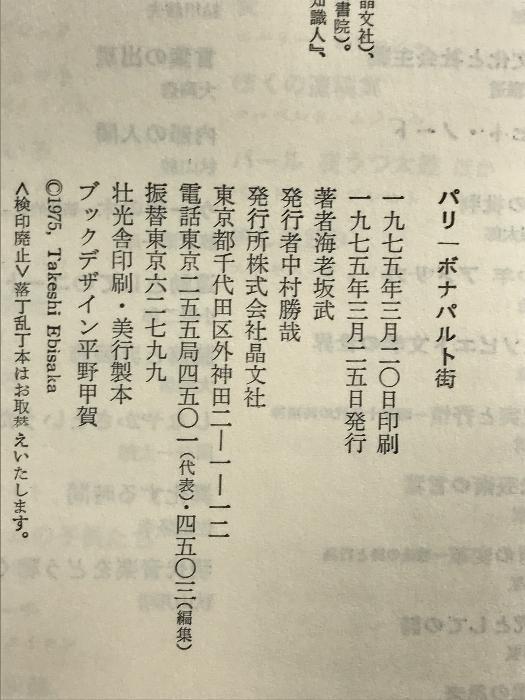 晶文社)、
書院)。
知識人』、
パリ―ボナパルト街
一九七五年三月二〇日印刷
一九七五年三月二五日発行
著者海老坂武
発行者中村勝哉
発行所株式会社晶文社
東京都千代田区外神田二―一―一二
電話東京二五五局四五〇一(代表)・四五〇三(編集)
振替東京六二七九九
壮光舎印刷・美行製本
ブックデザイン平野甲賀
©1975, Takeshi Ebisaka
<検印廃止>落丁乱丁本はお取替えいたします。